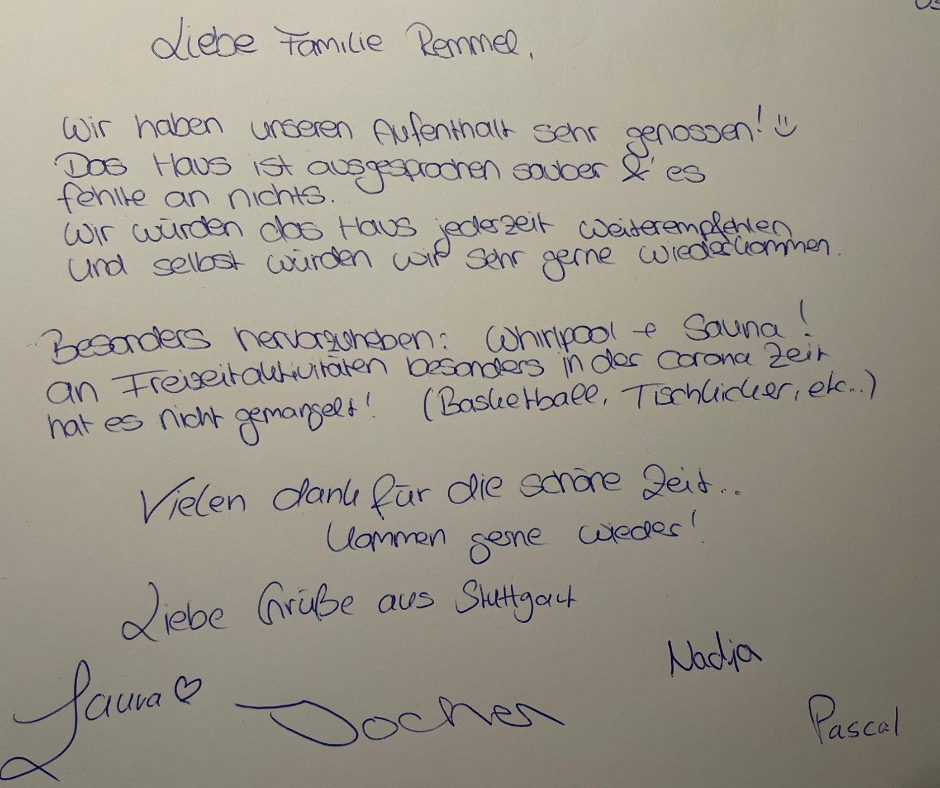 Liebe Familie Remmel,
Wir haben unseren Aufenthalt sehr genossen! ☺
Das Haus ist ausgesprochen sauber & es
fehlte an nichts.
Wir würden das Haus jederzeit weiterempfehlen
und selbst würden wir sehr gerne wiederkommen.
Besonders hervorzuheben: Whirlpool + Sauna!
an Freizeitaktivitäten besonders in der Corona Zeit
hat es nicht gemangelt! (Basketball, Tischkicker, etc..)
Vielen dank für die schöne Zeit..
Kommen gerne wieder!
Liebe Grüße aus Stuttgart
Nadja
Laura ♡ Jochen
Pascal